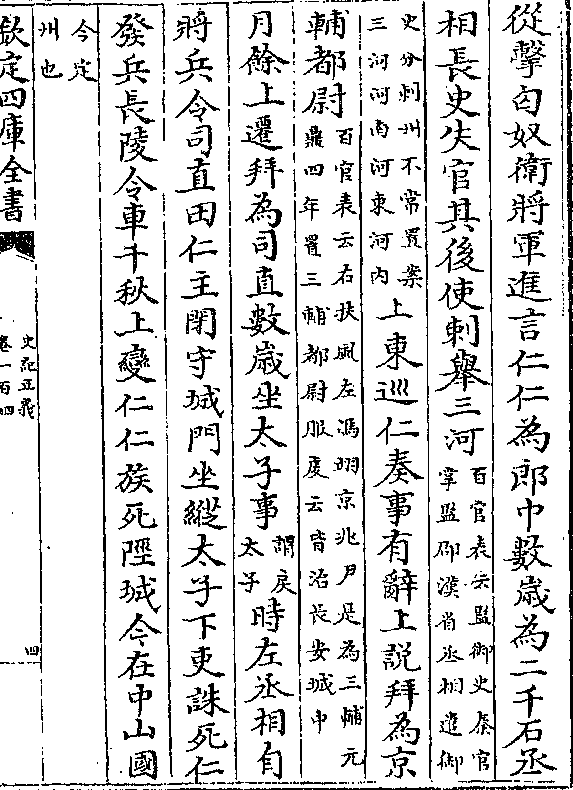 從擊匈奴衛將軍進言仁仁為郎中數歲為二千石丞
相長史失官其後使刺舉三河
百官表云監御史秦官
掌監郡漢省丞相遣御
史分刺州不常置案
三河河南河東河内
上東巡仁奏事有辭上說拜為京
輔都尉
百官表云右扶風左馮翊京兆尹是為三輔元
鼎四年置三輔都尉服虔云皆治長安城中
月餘上遷拜為司直數歲坐太子事
謂戾
太子
時左丞相自
將兵令司直田仁主閉守城門坐縱太子下吏誅死仁
發兵長陵令車千秋上變仁仁族死陘城今在中山國
今定
州也
欽定四庫全書
史記正義
卷一百四
四